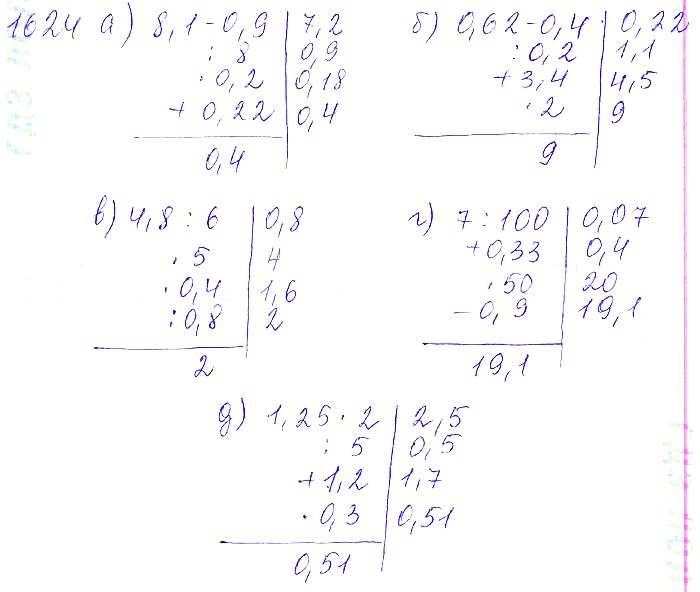 1624 а) 8,1-0,9 | 7,2
: 8 | 0,9
· 0,2 | 0,18
+ 0,22 | 0,4
0,4
б) 0,62-0,4 · 0,22
: 0,2 | 1,1
+ 3,4 | 4,5
· 2 | 9
9
в) 4,8 : 6 | 0,8
· 5 | 4
· 0,4 | 1,6
: 0,8 | 2
2
г) 7 : 100 | 0,07
+0,33 | 0,4
· 50 | 20
- 0,9 | 19,1
19,1
д) 1,25 · 2 | 2,5
: 5 | 0,5
+ 1,2 | 1,7
· 0,3 | 0,51
0,51